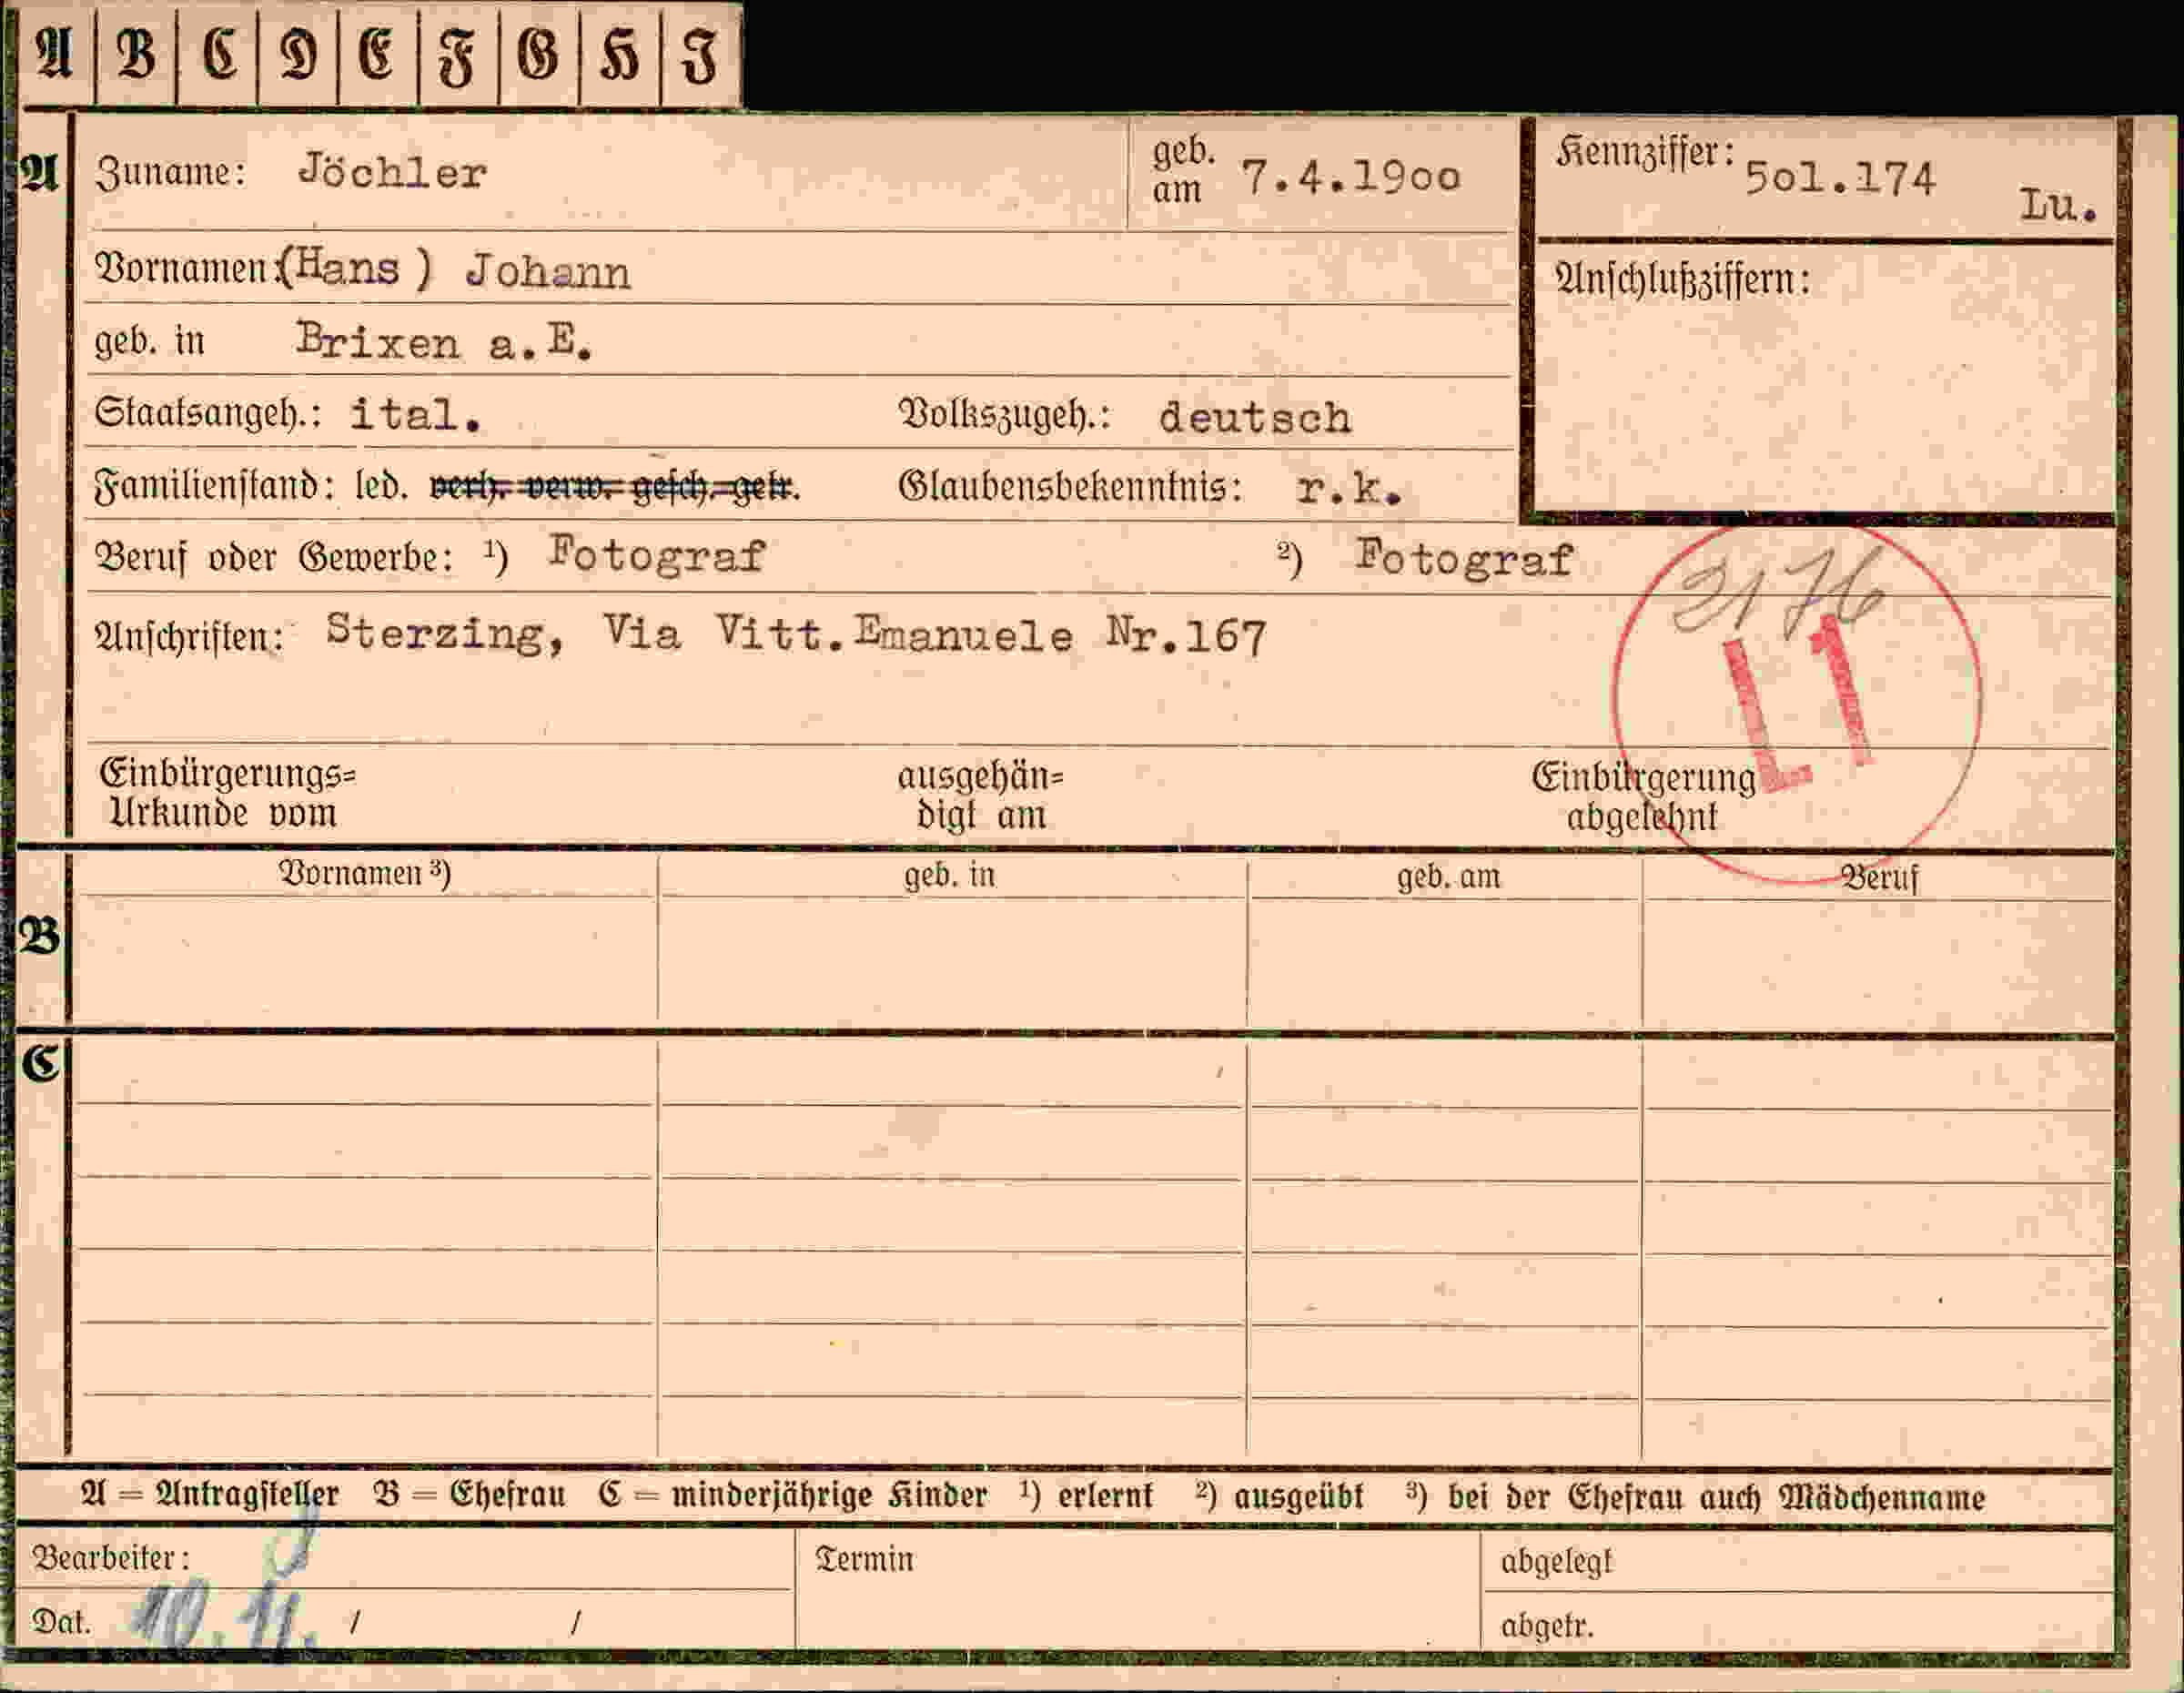 A B C D E F G H I
A Zuname: Jöchler geb. am 7.4.19oo Kennziffer: 5o1.174 Lu.
Vornamen: (Hans) Johann Anschlußziffern:
geb. in Brixen a.E.
Staatsangeh.: ital. Volkszugeh.: deutsch
Familienstand: led. verh. verw. gesch. getr. Glaubensbekenntnis: r.k.
Beruf oder Gewerbe: ¹) Fotograf ²) Fotograf
2176
Anschriften: Sterzing, Via Vitt.Emanuele Nr.167
L1
Einbürgerungs= ausgehän= Einbürgerung
Urkunde vom digt am abgelehnt
Vornamen ³) geb. in geb. am Beruf
B
C
A = Antragsteller B = Ehefrau C = minderjährige Kinder ¹) erlernt ²) ausgeübt ³) bei der Ehefrau auch Mädchenname
Bearbeiter: Termin abgelegt
Dat. 10.11. / / abgetr.